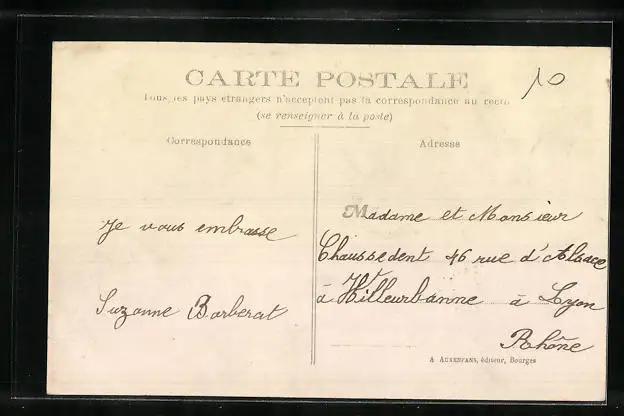 CARTE POSTALE
10
Tous les pays étrangers n'acceptent pas la correspondance au recto
(se renseigner à la poste)
Correspondance
Adresse
Je vous embrasse
Suzanne Barberat
Madame et Monsieur
Chaussedent 46 rue d'Alsace
à Villeurbanne à Lyon
Rhône
A AUXENFANS, éditeur, Bourges